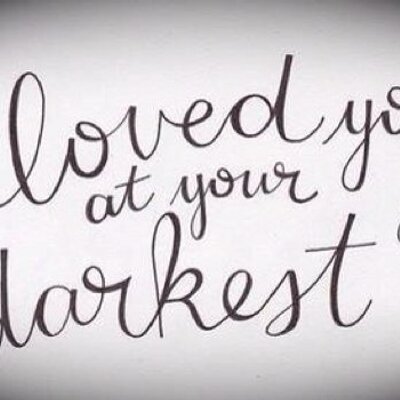 loved yo
at your
darkest